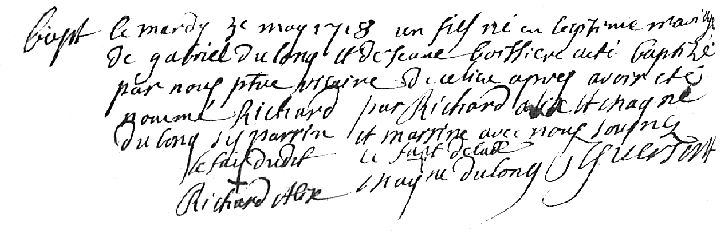 bapt le mardy 3e may 1718 un fils né en legitime mariage
de gabriel du long et de Jeane boissiere a été baptizé
par nous ptre vicaire de ce lieu apres avoir été
nommé Richard par Richard alix et
du long ses parrin et marrine avec nous sousignes
le fait dudit le fait de lad
Richard Alix du long